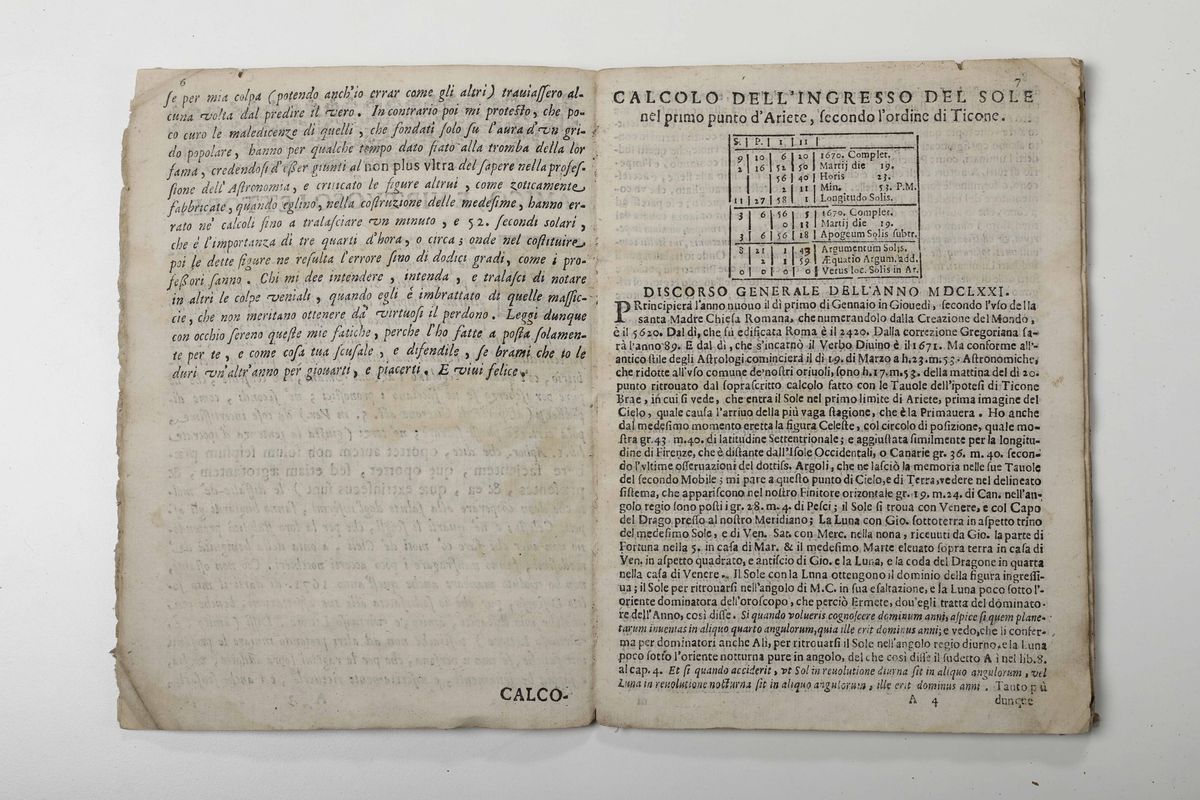 6
ſe per mia colpa (potendo anch'io errar come gli altri) trauiaſſero al-
cuna volta dal predire il vero. In contrario poi mi proteſto, che po-
co curo le maledicenze di quelli, che fondati ſolo ſu l'aura d'vn gri-
do popolare, hanno per qualche tempo dato fiato alla tromba della lor
fama, credendoſi d'eſſer giunti al non plus vltra del ſapere nella profeſ-
ſione dell'Aſtronomia, e criticato le figure altrui, come zoticamente
fabbricate, quando eglino, nella coſtruzione delle medeſime, hanno er-
rato ne' calcoli ſino a tralaſciare vn minuto, e 52. ſecondi ſolari,
che è l'importanza di tre quarti d'hora, o circa; onde nel coſtituire
poi le dette figure ne reſulta l'errore ſino di dodici gradi, come i pro-
feſſori ſanno. Chi mi dee intendere, intenda, e tralaſci di notare
in altri le colpe veniali, quando egli è imbrattato di quelle maſſic-
cie, che non meritano ottenere da' virtuoſi il perdono. Leggi dunque
con occhio ſereno queſte mie fatiche, perche l'ho fatte a poſta ſolamen-
te per te, e come coſa tua ſcuſale, e difendile, ſe brami che io le
duri vn'altr'anno per giouarti, e piacerti. E viui felice.
CALCO-
7
CALCOLO DELL'INGRESSO DEL SOLE
nel primo punto d'Ariete, ſecondo l'ordine di Ticone.
S. | P. | I | II |
9 | 10 | 6 | 20 | 1670. Complet.
2 | 16 | 52 | 50 | Martij die 19.
56 | 40 | Horis 23.
2 | 11 | Min. 53. P.M.
11 | 27 | 58 | 1 | Longitudo Solis.
3 | 6 | 56 | 5 | 1670. Complet.
0 | 13 | Martij die 19.
3 | 6 | 56 | 18 | Apogeum Solis ſubtr.
8 | 21 | 1 | 43 | Argumentum Solis.
2 | 1 | 59 | Æquatio Argum. add.
0 | 0 | 0 | 0 | Verus loc. Solis in Ar.
DISCORSO GENERALE DELL'ANNO MDCLXXI.
PRrincipierà l'anno nuouo il dì primo di Gennaio in Giouedì, ſecondo l'vſo della
santa Madre Chieſa Romana, che numerandolo dalla Creazione del Mondo,
è il 5620. Dal dì, che fù edificata Roma è il 2420. Dalla correzione Gregoriana ſa-
rà l'anno 89. E dal dì, che s'incarnò il Verbo Diuino è il 1671. Ma conforme all'-
antico ſtile degli Aſtrologi comincierà il dì 19. di Marzo a h.23. m.53. Aſtronomiche,
che ridotte all'vſo comune de' noſtri oriuoli, ſono h.17. m.53. della mattina del dì 20.
punto ritrouato dal ſopraſcritto calcolo fatto con le Tauole dell'ipoteſi di Ticone
Brae, in cui ſi vede, che entra il Sole nel primo limite di Ariete, prima imagine del
Cielo, quale cauſa l'arriuo della più vaga ſtagione, che è la Primauera. Ho anche
dal medeſimo momento eretta la figura Celeſte, col circolo di poſizione, quale mo-
ſtra gr. 43 m. 40. di latitudine Settentrionale; e aggiuſtata ſimilmente per la longitu-
dine di Firenze, che è diſtante dall'Iſole Occidentali, o Canarie gr. 36. m. 40. ſecon-
do l'vltime oſſeruazioni del dottiſs. Argoli, che ne laſciò la memoria nelle ſue Tauole
del ſecondo Mobile; mi pare a queſto punto di Cielo, e di Terra, vedere nel delineato
ſiſtema, che appariſcono nel noſtro Finitore orizontale gr. 19. m. 24. di Can. nell'an-
golo regio ſono poſti i gr. 28. m. 4. di Peſci; il Sole ſi troua con Venere, e col Capo
del Drago preſſo al noſtro Meridiano; La Luna con Gio. ſottoterra in aſpetto trino
del medeſimo Sole, e di Ven. Sat. con Merc. nella nona, riceuti da Gio. la parte di
Fortuna nella 5. in caſa di Mar. & il medeſimo Marte eleuato ſopra terra in caſa di
Ven. in aſpetto quadrato, e antiſcio di Gio. e la Luna, e la coda del Dragone in quarta
nella caſa di Venere. Il Sole con la Luna ottengono il dominio della figura ingreſſi-
ua; il Sole per ritrouarſi nell'angolo di M.C. in ſua eſaltazione, e la Luna poco ſotto l'-
oriente dominatora dell'oroſcopo, che perciò Ermete, dou'egli tratta del dominato-
re dell'Anno, così diſſe. Si quando volueris cognoſcere dominum anni, aſpice ſi quem plane-
tarum inuenias in aliquo quarto angulorum, quia ille erit dominus anni; e vedo, che li confer-
ma per dominatori anche Ali, per ritrouarſi il Sole nell'angolo regio diurno, e la Luna
poco ſotto l'oriente notturna pure in angolo, del che così diſſe il ſudetto A i nel lib. 8.
al cap. 4. Et ſi quando acciderit, vt Sol in reuolutione diurna ſit in aliquo angulorum, vel
Luna in reuolutione notturna ſit in aliquo angulorum, ille erit dominus anni. Tanto pù
A 4
dunque